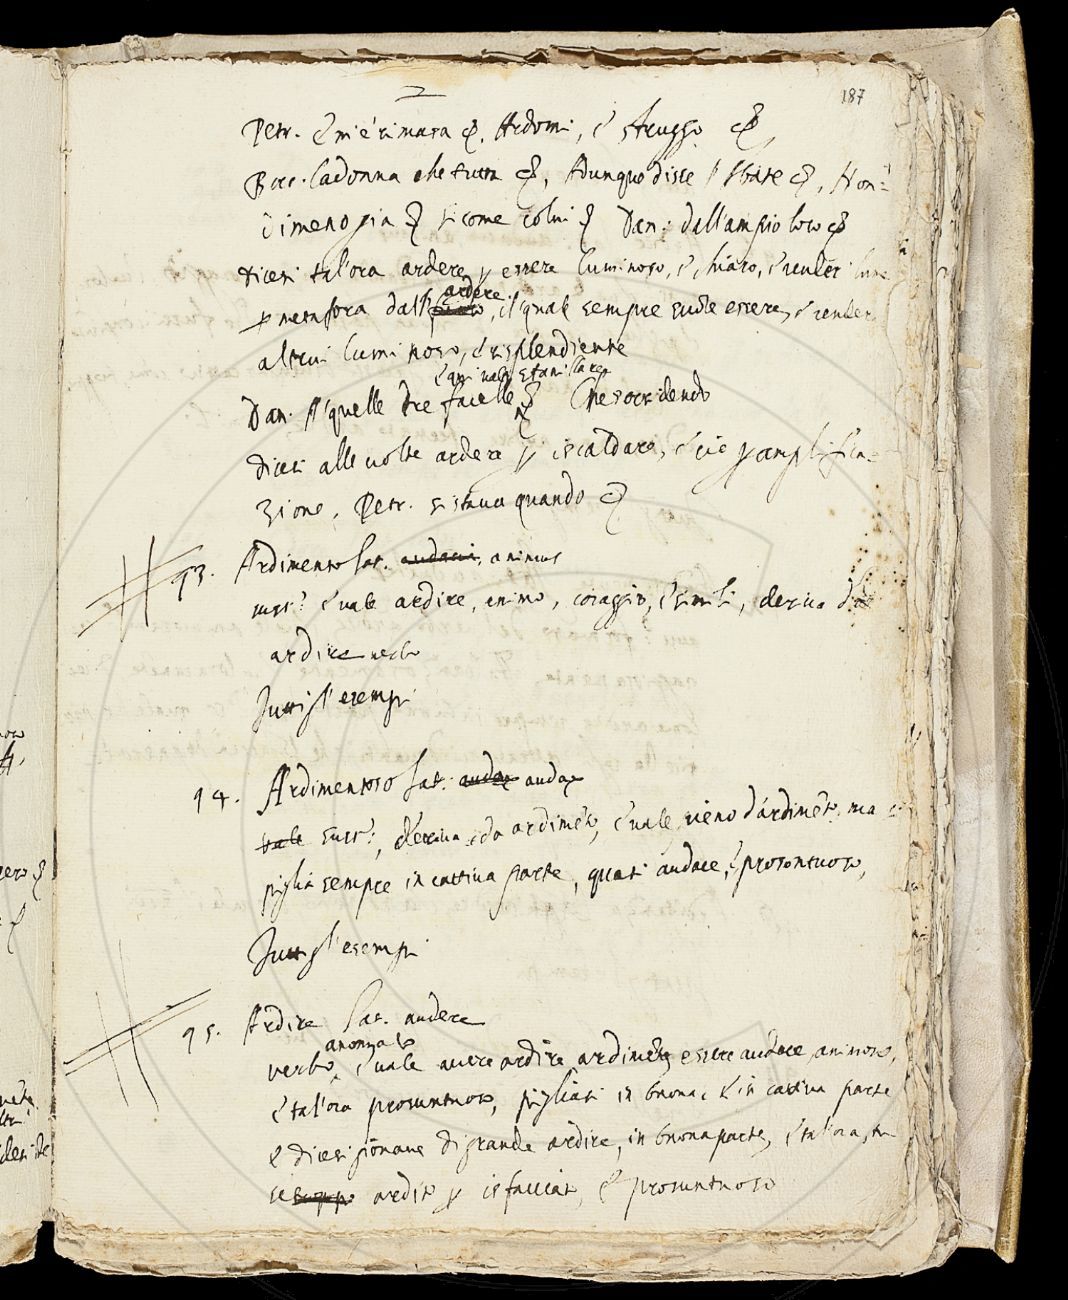 187
Petr. E m'è rimasa &c. Ardomi, e struggo &c.
Bocc. La donna che tutta &c, Adunque disse l'Abate &c, Non-
dimeno già &c si come colui &c Dan: dall'ampio loco &c
dicesi tal'ora ardere p essere luminoso, e chiaro, e render lume
p metafora dall'ardere, il quale sempre suole essere, e render
altrui luminoso, e risplendiente
e qui vale stanillare
Dan. A quelle tre facelle &c Che occidendo
dicesi alle volte ardere p iscaldare, e ciò p amplifica-
zione, Petr. Si stava quando &c
93. Ardimento Lat. audacia, animus
sust: e vale ardire, animo, coraggio, e simili, deriva da
ardire verbo
Tutti gl'esempi
94. Ardimentoso Lat. audax audax
vale sust:, deriva da ardimēto, e vale pieno d'ardimēto, ma si
piglia sempre in cattiva parte, quasi audace, e prosontuoso,
Tutti gl'esempi
95. Ardire Lat. audere
anomalo
verbo, e vale avere ardire ardimēto essere audace, animoso,
e tal'ora prosuntuoso, pigliasi in buona, e in cattiva parte
e dicesi giovane di grande ardire, in buona parte, e tal'ora, tu
se troppo ardito p isfacciato, e prosuntuoso